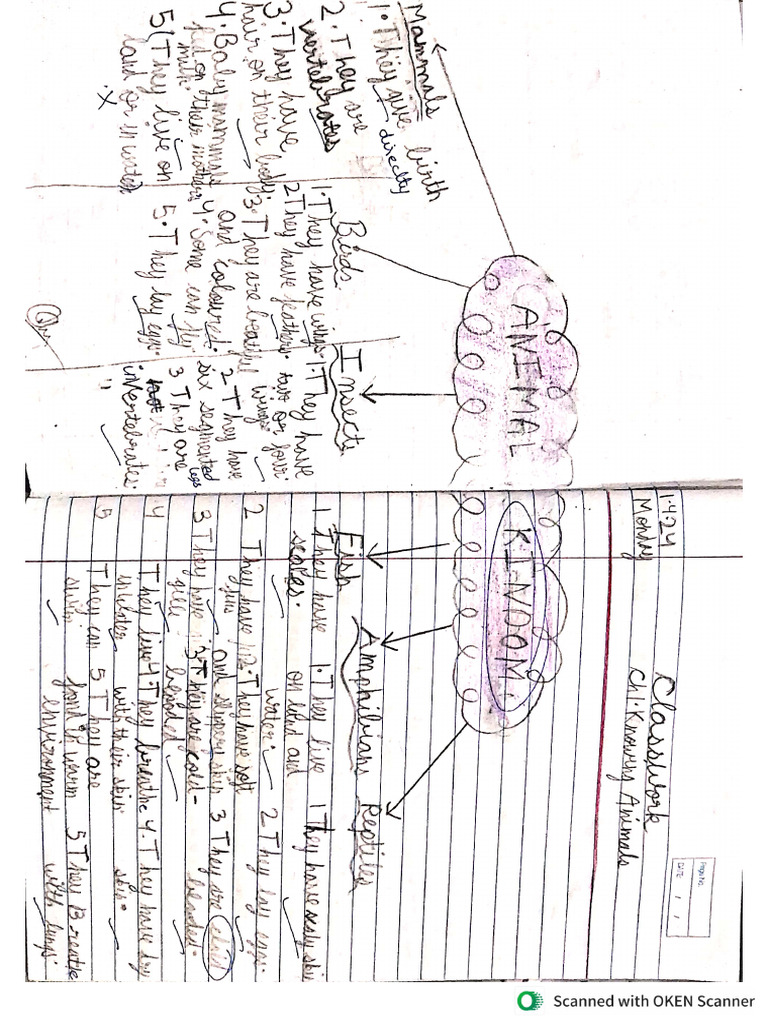 1·4·24
Monday
Classwork
Ch1: Knowing Animals
Page No.
DATE
ANIMAL KINDOM.
Mammals
1. They give birth
directly
2. They are
vertebrates
3. They have
hair on their body.
4. Baby mammals
feed on their mothers
milk.
5. They live on
land or in water
Birds
1. They have wings
2 They have feathers.
3. They are beatiful
and coloured.
4. Some can fly
5. They lay eggs.
Insects
1. They have
two or four
wings
2 They have
six segmented
legs
3 They are
invertebrates
Fish
1 They have
scales.
2 They have
fins
3 They have
4 They live
in water
5 They can
swim
Amphibians
1. They live
on land and
water.
2. They have soft
and slippery skin
3. They are cold-
blooded
4. They breathe
with their skin
5 They are
found in warm
environment
Reptiles
1 They have scaly skin
2 They lay eggs.
3 They are cold
blooded.
4. They have dry
skin.
5 They Breathe
with lungs
Scanned with OKEN Scanner